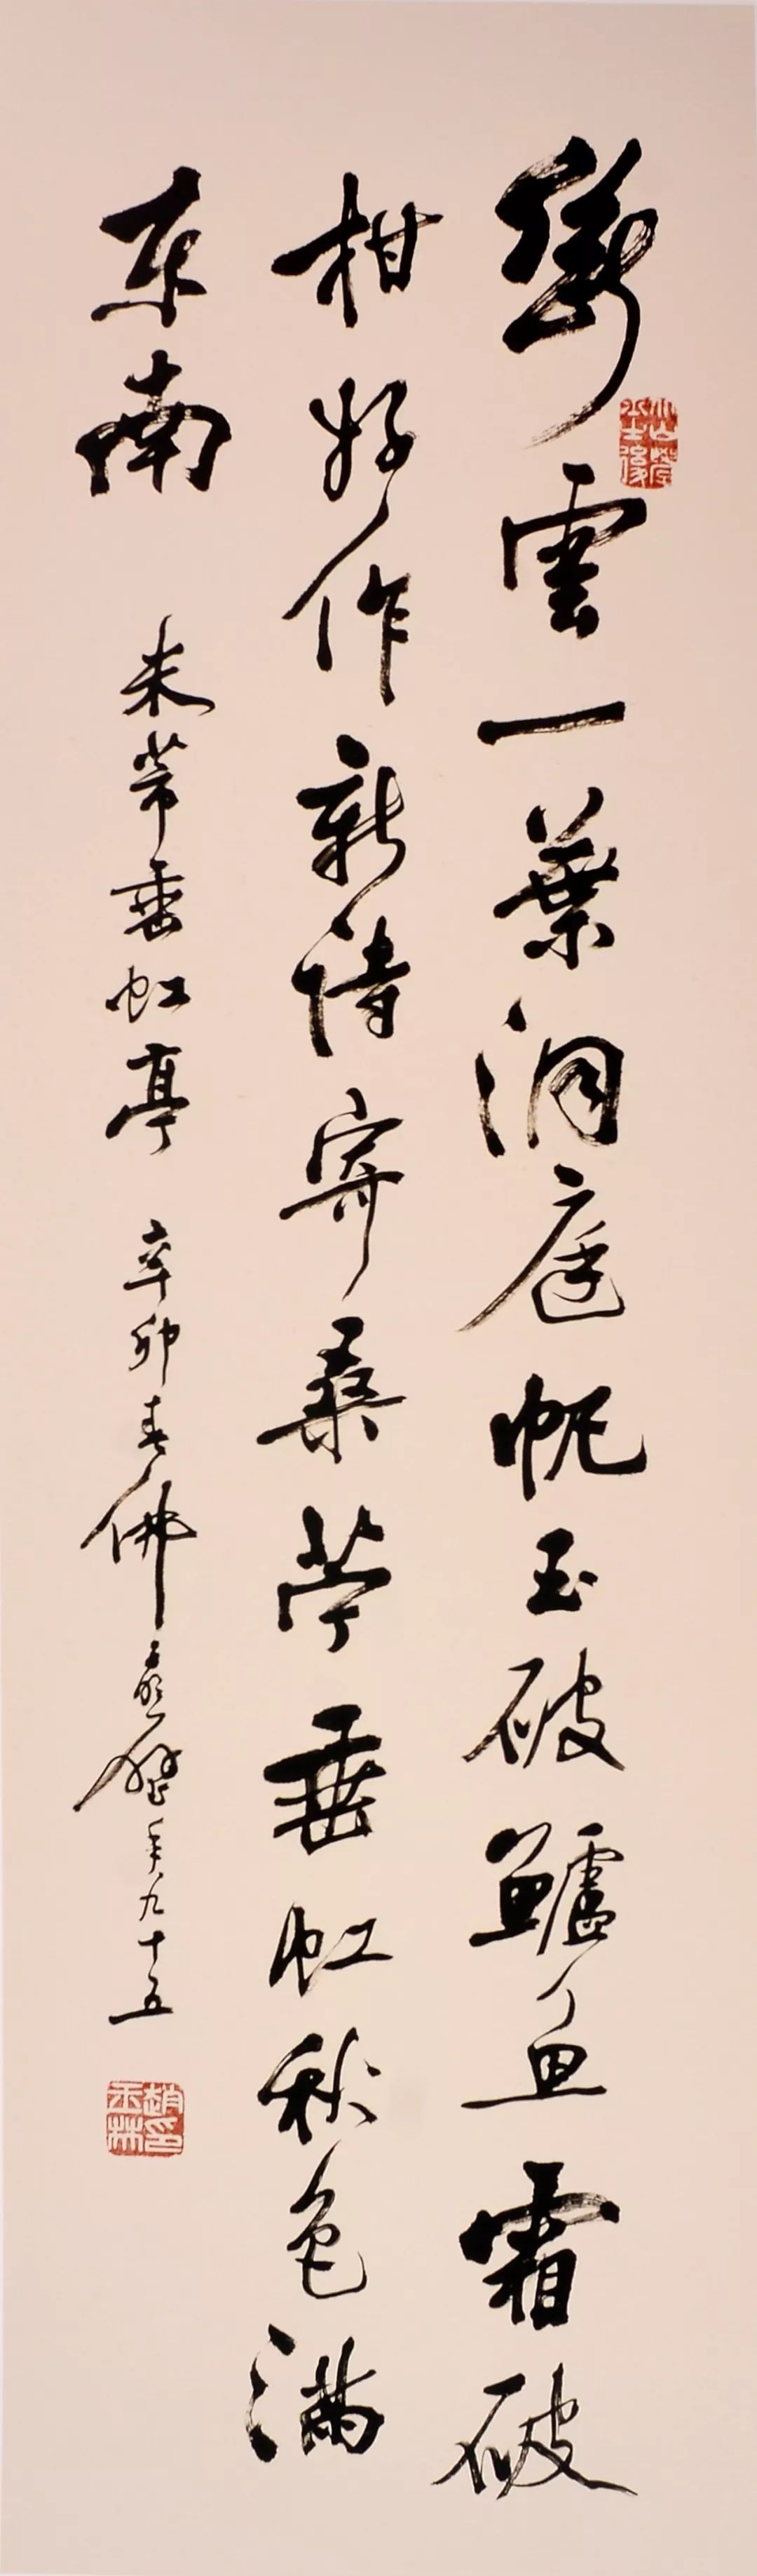 斷雲一葉洞庭帆玉破鱸魚霜破
柑好作新詩寄桑苧垂虹秋色满
东南
米芾垂虹亭
辛卯春佛
年九十五
趙玉林印